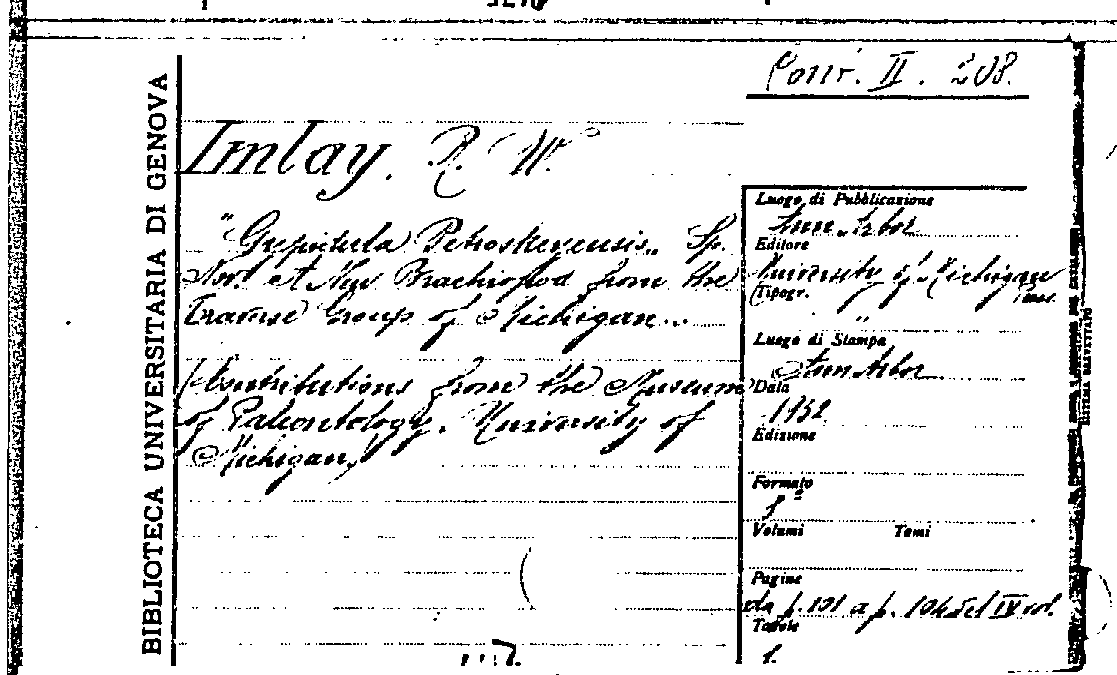 Conr. II. 208.
BIBLIOTECA UNIVERSITARIA DI GENOVA
Imlay, R. W.
"Gypidula Petoskeyensis„ Sp.
Nov. A New Brachiopod from the
Traverse Group of Michigan...
(Contributions from the Museum
of Paleontology. University of
Michigan)
Luogo di Pubblicazione
Ann Arbor
Editore
University of Michigan
Tipogr.
Luogo di Stampa
Ann Arbor
Data
1932
Edizione
Formato
8°
Volumi Tomi
Pagine
da p. 191 a p. 194 del IV vol.
Tavole
1.